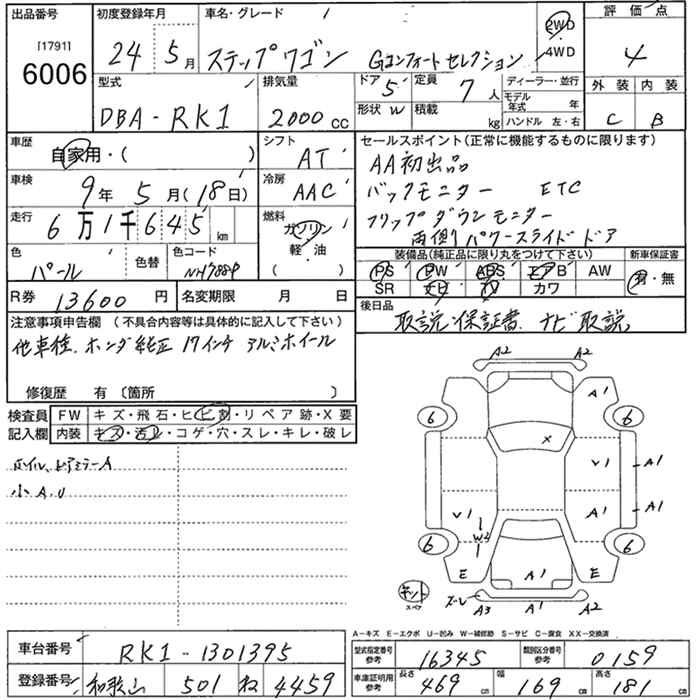 出品番号 [1791] 6006
初度登録年月 24 5月
車名・グレード
ステップワゴン Gコンフォートセレクション
2WD
4WD
評価点 4
外装 C 内装 B
型式 DBA-RK1
排気量 2000cc
ドア 5
形状 W
定員 7人
積載 kg
ディーラー・並行
モデル年式 年
ハンドル 左・右
車歴 自家用・( )
シフト AT
車検 9年5月(18日)
冷房 AAC
走行 6万1千645km
燃料 ガソリン
軽・油
( )
色 パール
色替
色コード NH788P
R券 13600円
名変期限 月 日
セールスポイント(正常に機能するものに限ります)
AA初出品
バックモニター ETC
フリップダウンモニター
両側パワースライドドア
装備品(純正品に限り丸をつけて下さい)
PS PW ABS エアB AW
SR ナビ TV カワ
新車保証書
有・無
後日品
取説・保証書、ナビ取説
注意事項申告欄 (不具合内容等は具体的に記入して下さい)
他車種、ホンダ純正17インチ アルミホイール
修復歴 有 〔箇所 〕
検査員
記入欄
FW キズ・飛石・ヒビ割・リペア跡・X要
内装 キズ・汚レ・コゲ・穴・スレ・キレ・破レ
ホイル、ドアミラーA
小A.U
A2 A2
A1
6 6
X
V1 A1
A1 A1
V1
W2
6 6
E A1 E
キット
スペア
ズレ
A3 A1 A2
A-キズ E-エクボ U-凹み W-補修跡 S-サビ C-腐食 XX-交換済
車台番号 RK1-1301395
登録番号 和歌山 501 ね 4459
型式指定番号 参考 16345
類別区分番号 参考 0159
車庫証明用 参考 長さ 469cm 幅 169cm 高さ 181cm